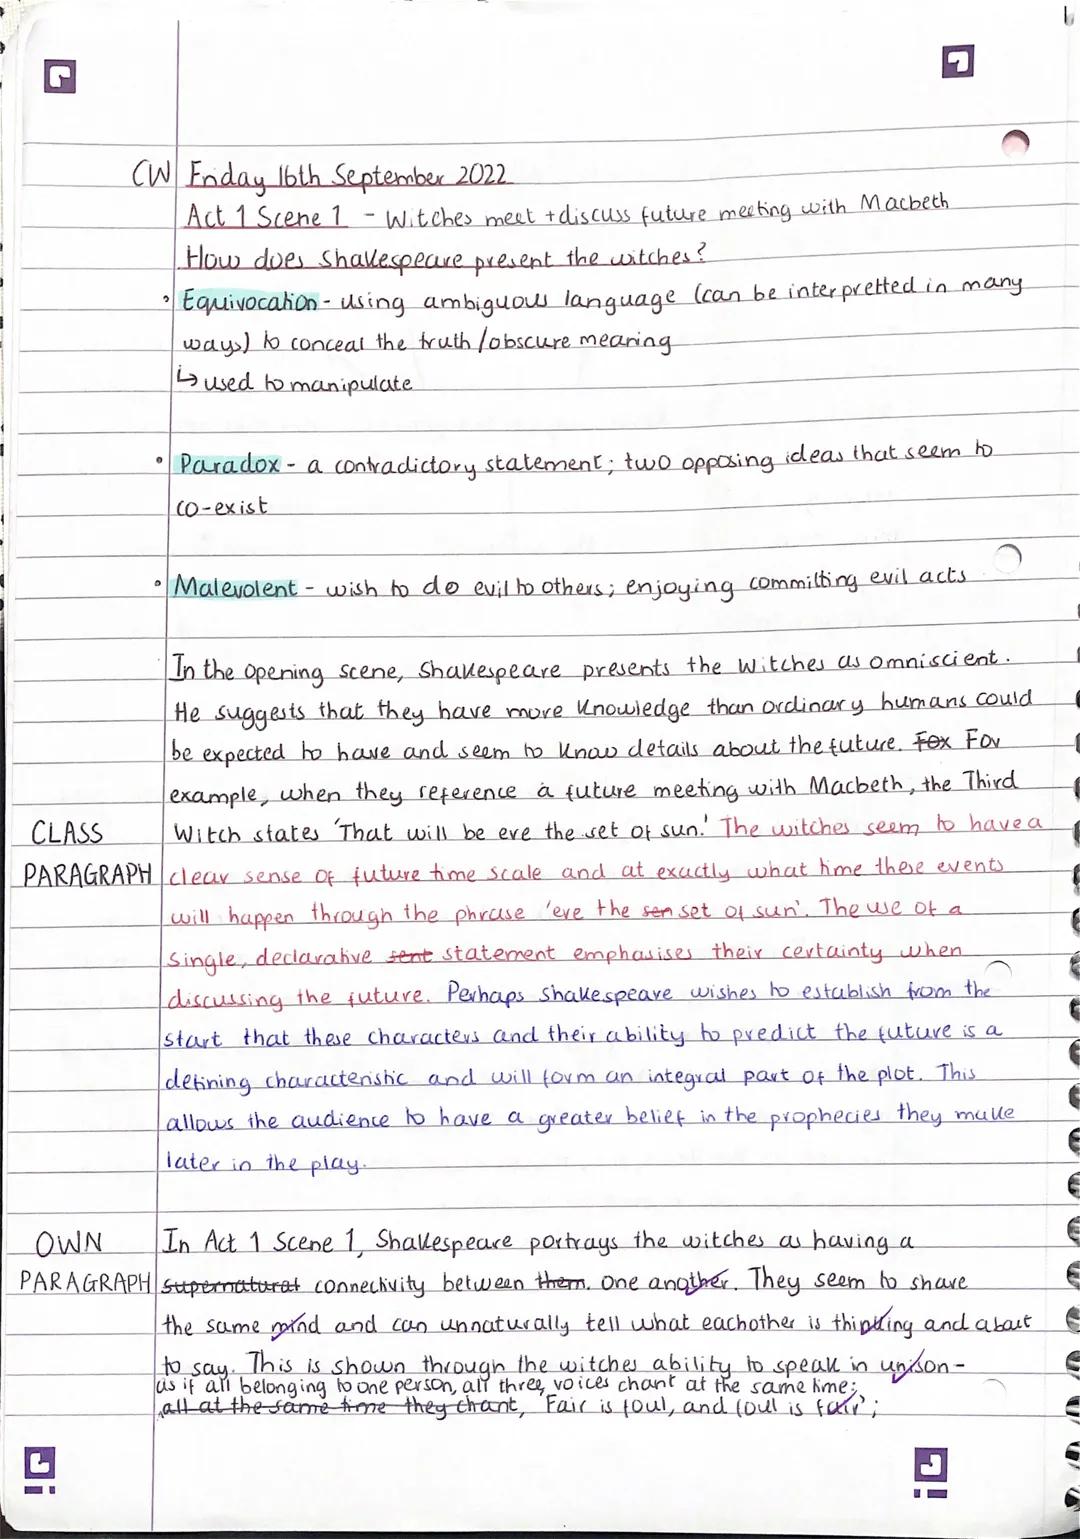 CW Friday 16th September 2022
Act 1 Scene 1 - Witches meet + discuss future meeting with Macbeth
How does Shakespeare present the witches?
• Equivocation - using ambiguous language (can be interpretted in many
ways) to conceal the truth / obscure meaning
↳ used to manipulate
• Paradox - a contradictory statement; two opposing ideas that seem to
co-exist
• Malevolent - wish to do evil to others; enjoying committing evil acts
In the opening scene, Shakespeare presents the Witches as omniscient.
He suggests that they have more knowledge than ordinary humans could
be expected to have and seem to know details about the future. Fox For
example, when they reference a future meeting with Macbeth, the Third
CLASS Witch states 'That will be ere the set of sun.' The witches seem to have a
PARAGRAPH clear sense of future time scale and at exactly what time these events
will happen through the phrase 'ere the sen set of sun'. The use of a
single, declarative sent statement emphasises their certainty when
discussing the future. Perhaps Shakespeare wishes to establish from the
start that these characters and their ability to predict the future is a
defining characteristic and will form an integral part of the plot. This
allows the audience to have a greater belief in the prophecies they make
later in the play.
OWN In Act 1 Scene 1, Shakespeare portrays the witches as having a
PARAGRAPH supernatural connectivity between them. one another. They seem to share
the same mind and can unnaturally tell what eachother is thinking and about
to say. This is shown through the witches ability to speak in unison -
as if all belonging to one person, all three voices chant at the same time;
all at the same time they chant, 'Fair is foul, and foul is fair';